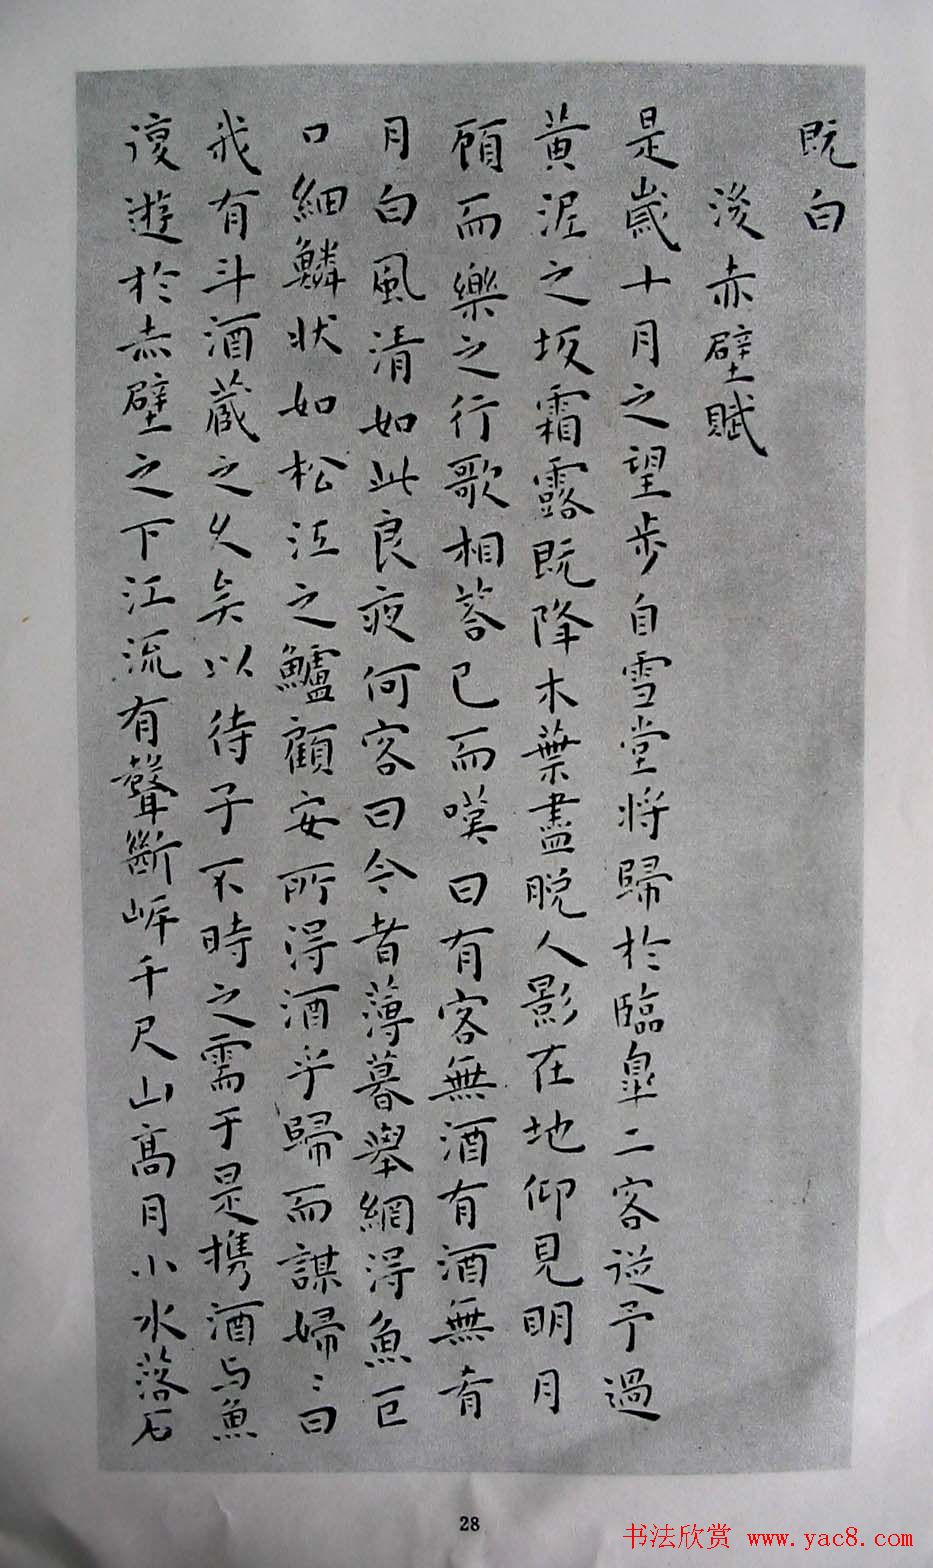 既白
後赤壁賦
是歲十月之望步自雪堂將歸於臨皐二客從予過
黃泥之坂霜露既降木葉盡脫人影在地仰見明月
顧而樂之行歌相荅已而嘆曰有客無酒有酒無肴
月白風清如此良夜何客曰今者薄暮舉網得魚巨
口細鱗狀如松江之鱸顧安所得酒乎歸而謀婦〻曰
我有斗酒藏之久矣以待子不時之需于是攜酒与魚
復遊於赤壁之下江流有聲斷岸千尺山高月小水落石
28
书法欣赏 www.yac8.com